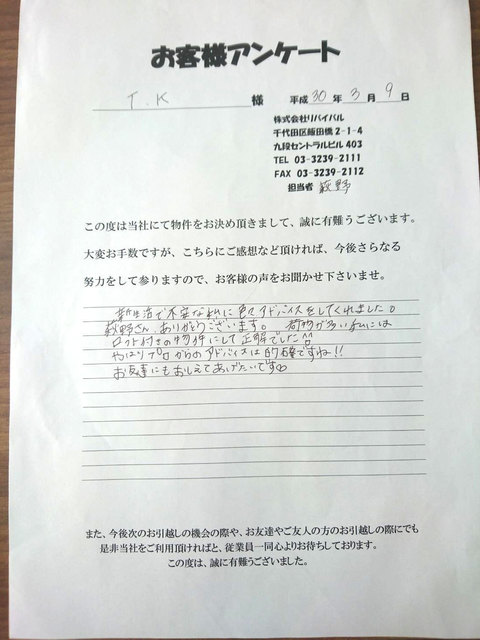 お客様アンケート
T.K 様 平成 30 年 3 月 9 日
株式会社リバイバル
千代田区飯田橋2-1-4
九段セントラルビル403
TEL 03-3239-2111
FAX 03-3239-2112
担当者 萩野
この度は当社にて物件をお決め頂きまして、誠に有難うございます。
大変お手数ですが、こちらにご感想など頂ければ、今後さらなる
努力をして参りますので、お客様の声をお聞かせ下さいませ。
新生活で不安な私に色々アドバイスをしてくれました。
萩野さん、ありがとうございます。 荷物が多い私には
ロフト付きの物件にして正解でした^^
やはりプロからのアドバイスは的確ですね!!
お友達にもおしえてあげたいです∞
また、今後次のお引越しの機会の際や、お友達やご友人の方のお引越しの際にでも
是非当社をご利用頂ければと、従業員一同心よりお待ちしております。
この度は、誠に有難うございました。